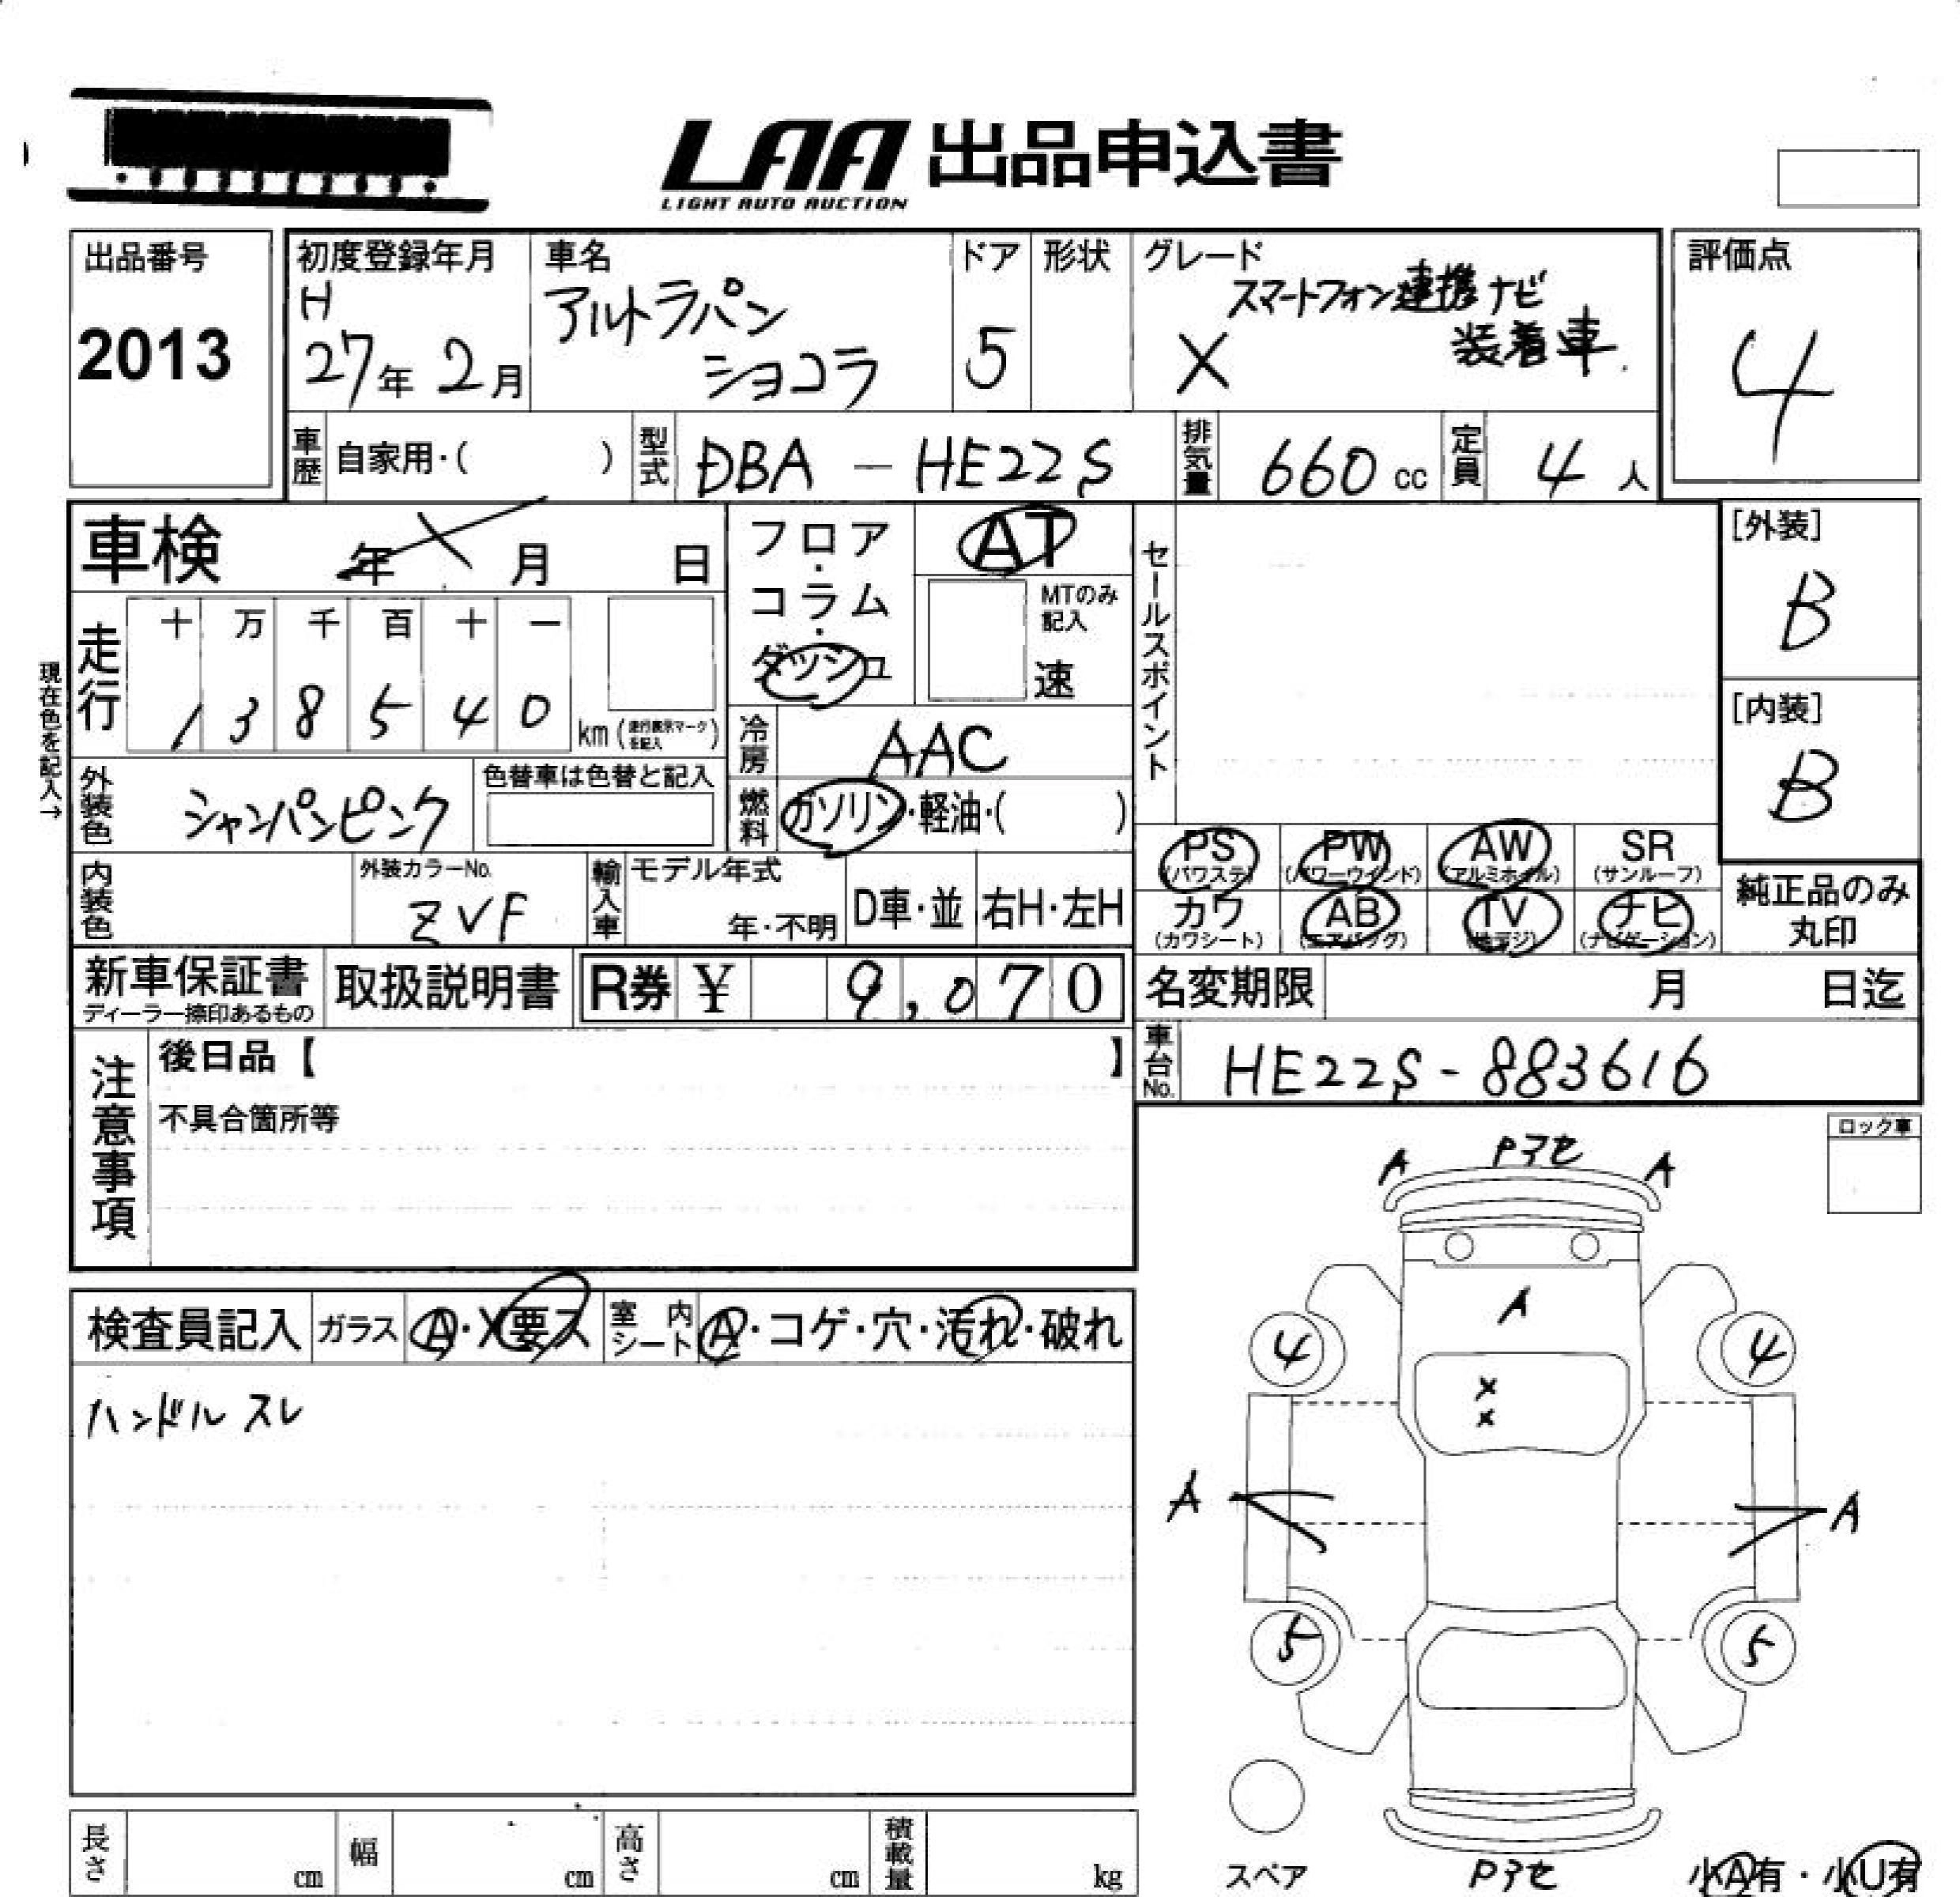 LAA 出品申込書
LIGHT AUTO AUCTION
出品番号
2013
初度登録年月
H
27年 2月
車名
アルトラパン
ショコラ
ドア
5
形状
グレード
スマートフォン連携ナビ
X 装着車
評価点
4
車歴 自家用・( )
型式 DBA - HE22S
排気量 660 cc
定員 4 人
車検 年 月 日
フロア・コラム・ダッシュ
AT
MTのみ
記入
速
セールスポイント
[外装]
B
[内装]
B
現在色を記入→
走行
十 万 千 百 十 一
1 3 8 5 4 0 km (走行表示マークを記入)
冷房 AAC
外装色 シャンパンピンク
色替車は色替と記入
燃料 ガソリン・軽油・( )
PS PW AW SR
(パワステ) (パワーウインド) (アルミホイル) (サンルーフ)
カワ AB TV ナビ
(カワシート) (エアバッグ) (地デジ) (ナビゲーション)
純正品のみ
丸印
内装色
外装カラーNo.
ZVF
輸入車
モデル年式
年・不明
D車・並
右H・左H
新車保証書
ディーラー捺印あるもの
取扱説明書
R券 ¥ 9,070
名変期限 月 日迄
車台No. HE22S-883616
注意事項
後日品【 】
不具合箇所等
ロック車
検査員記入
ガラス A・X要ス
室内シート A・コゲ・穴・汚れ・破れ
ハンドル スレ
A Pｱｾ A
A
4 4
X
X
A A
5 5
スペア
Pｱｾ
小A有・小U有
長さ cm
幅 cm
高さ cm
積載量 kg